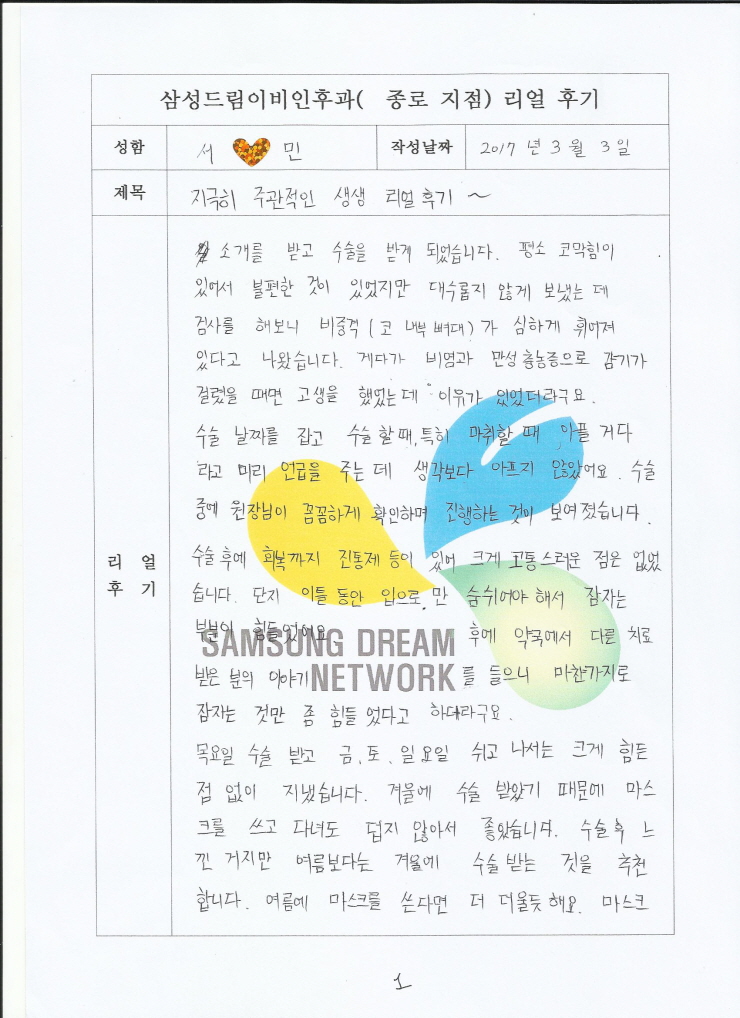 삼성드림이비인후과( 종로 지점) 리얼 후기
성함 서 민 작성날짜 2017 년 3 월 3 일
제목 지극히 주관적인 생생 리얼후기 ~
리 얼
후 기
소개를 받고 수술을 받게 되었습니다. 평소 코막힘이
있어서 불편한 것이 있었지만 대수롭지 않게 보냈는 데
검사를 해보니 비중격 (코 내부 뼈대) 가 심하게 휘어져
있다고 나왔습니다. 게다가 비염과 만성 축농증으로 감기가
걸렸을 때면 고생을 했었는데 이유가 있었더라구요.
수술 날짜를 잡고 수술 할 때, 특히 마취할 때 아플 거다
라고 미리 언급을 주는 데 생각보다 아프지 않았어요. 수술
중에 원장님이 꼼꼼하게 확인하며 진행하는 것이 보여졌습니다.
수술 후에 회복까지 진통제 등이 있어 크게 고통스러운 점은 없었
습니다. 단지 이틀 동안 입으로만 숨쉬어야 해서 잠자는
부분이 힘들었어요 후에 약국에서 다른 치료
받은 분의 이야기를 들으니 마찬가지로
SAMSUNG DREAM
NETWORK
잠자는 것만 좀 힘들었다고 하더라구요.
목요일 수술 받고 금, 토, 일요일 쉬고 나서는 크게 힘든
점 없이 지냈습니다. 겨울에 수술 받았기 때문에 마스
크를 쓰고 다녀도 덥지 않아서 좋았습니다. 수술 후 느
낀 거지만 여름보다는 겨울에 수술 받는 것을 추천
합니다. 여름에 마스크를 쓴다면 더 더울듯 해요. 마스크
1